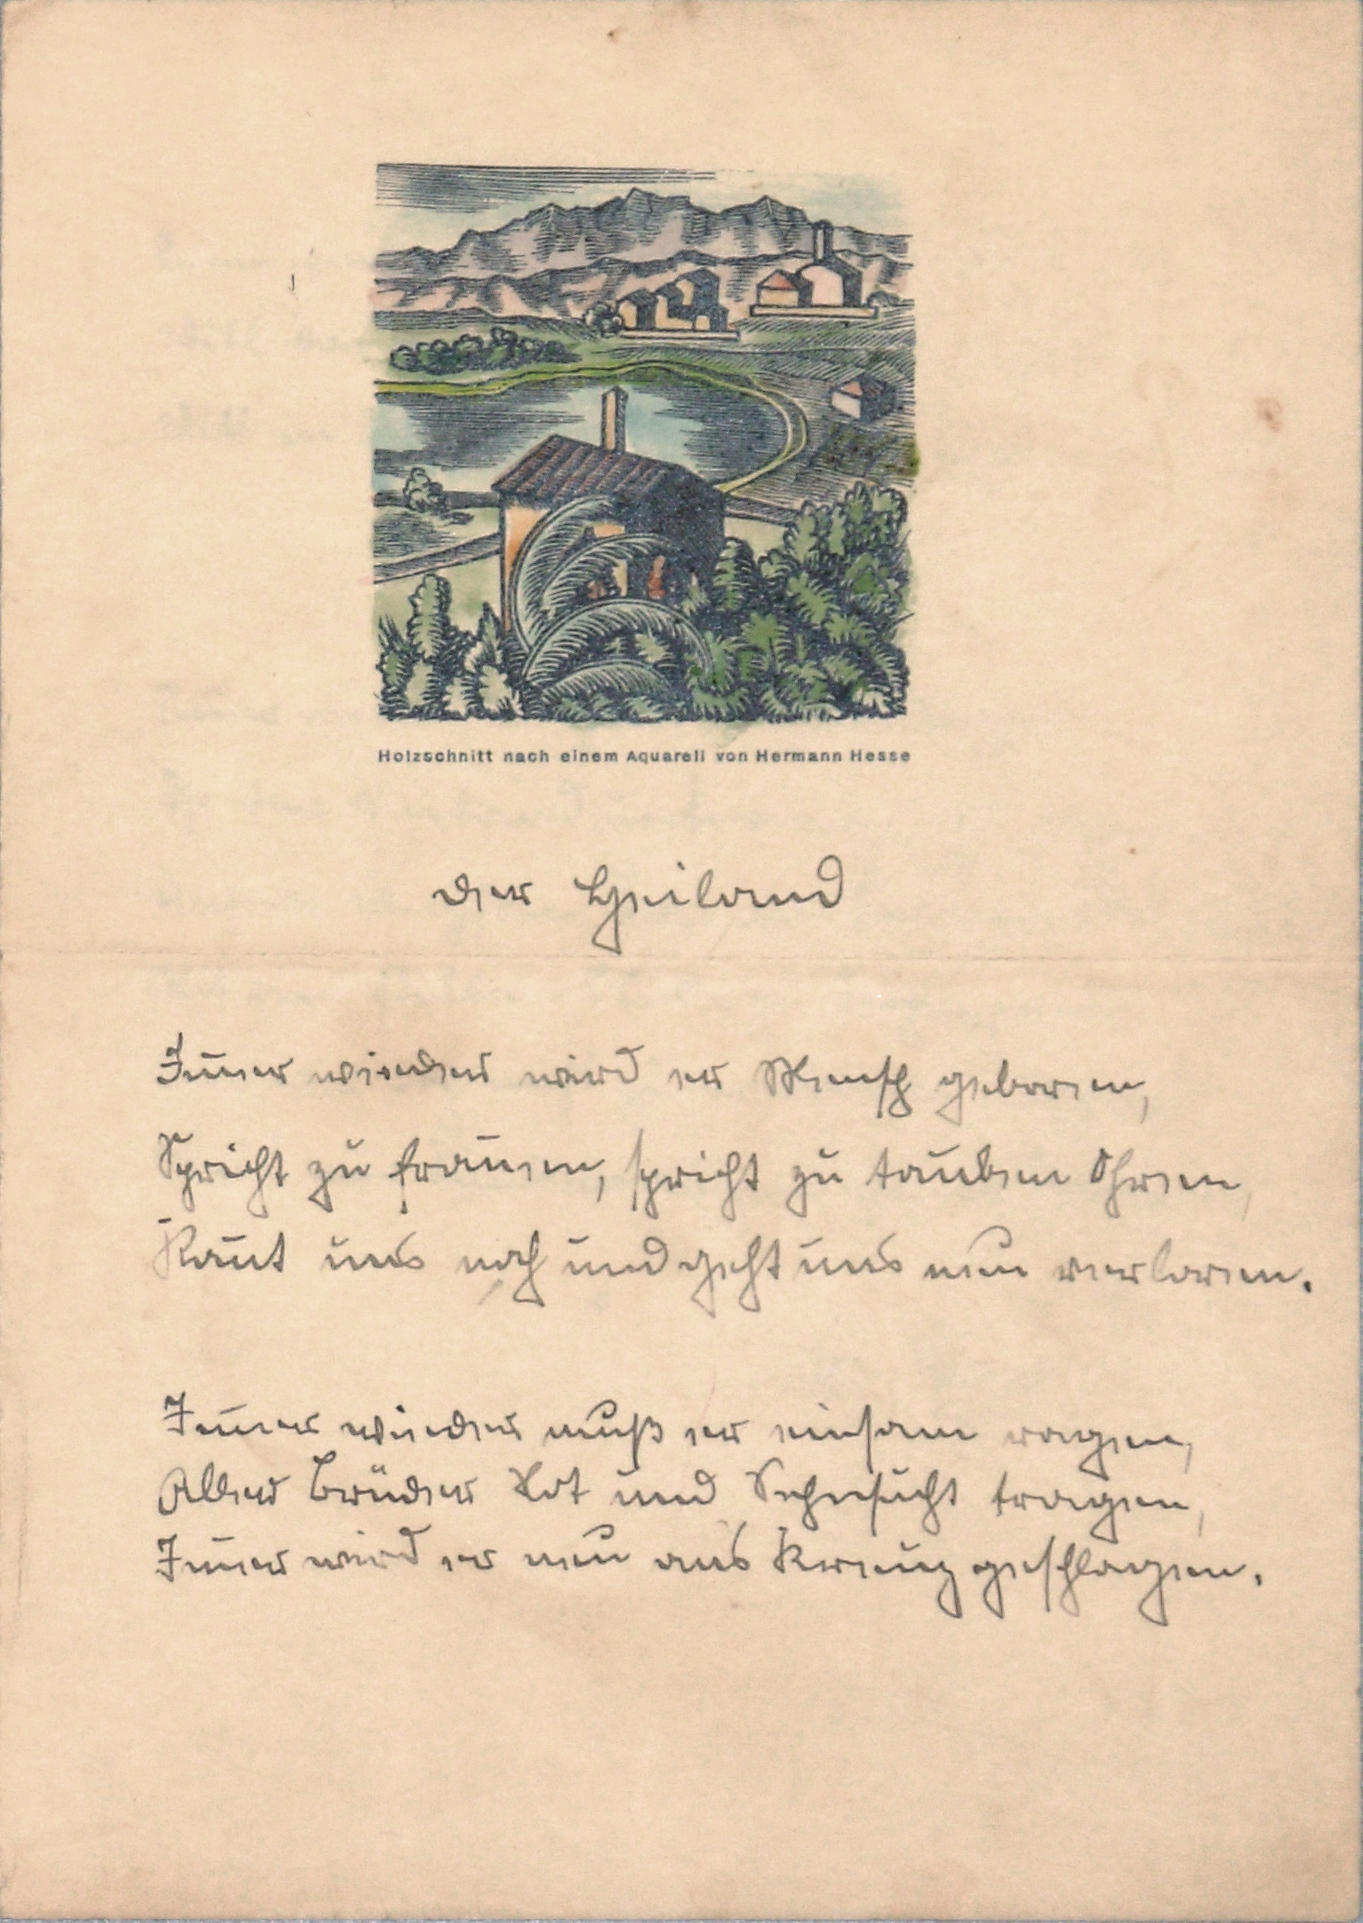 Holzschnitt nach einem Aquarell von Hermann Hesse
Der Heiland
Im̄er wieder wird er Mensch geboren,
Spricht zu from̄en, spricht zu tauben Ohren,
Kom̄t uns nah und geht uns neu verloren.
Im̄er wieder muß er einsam ragen,
Aller Brüder Not und Sehnsucht tragen,
Im̄er wird er neu ans Kreuz geschlagen.